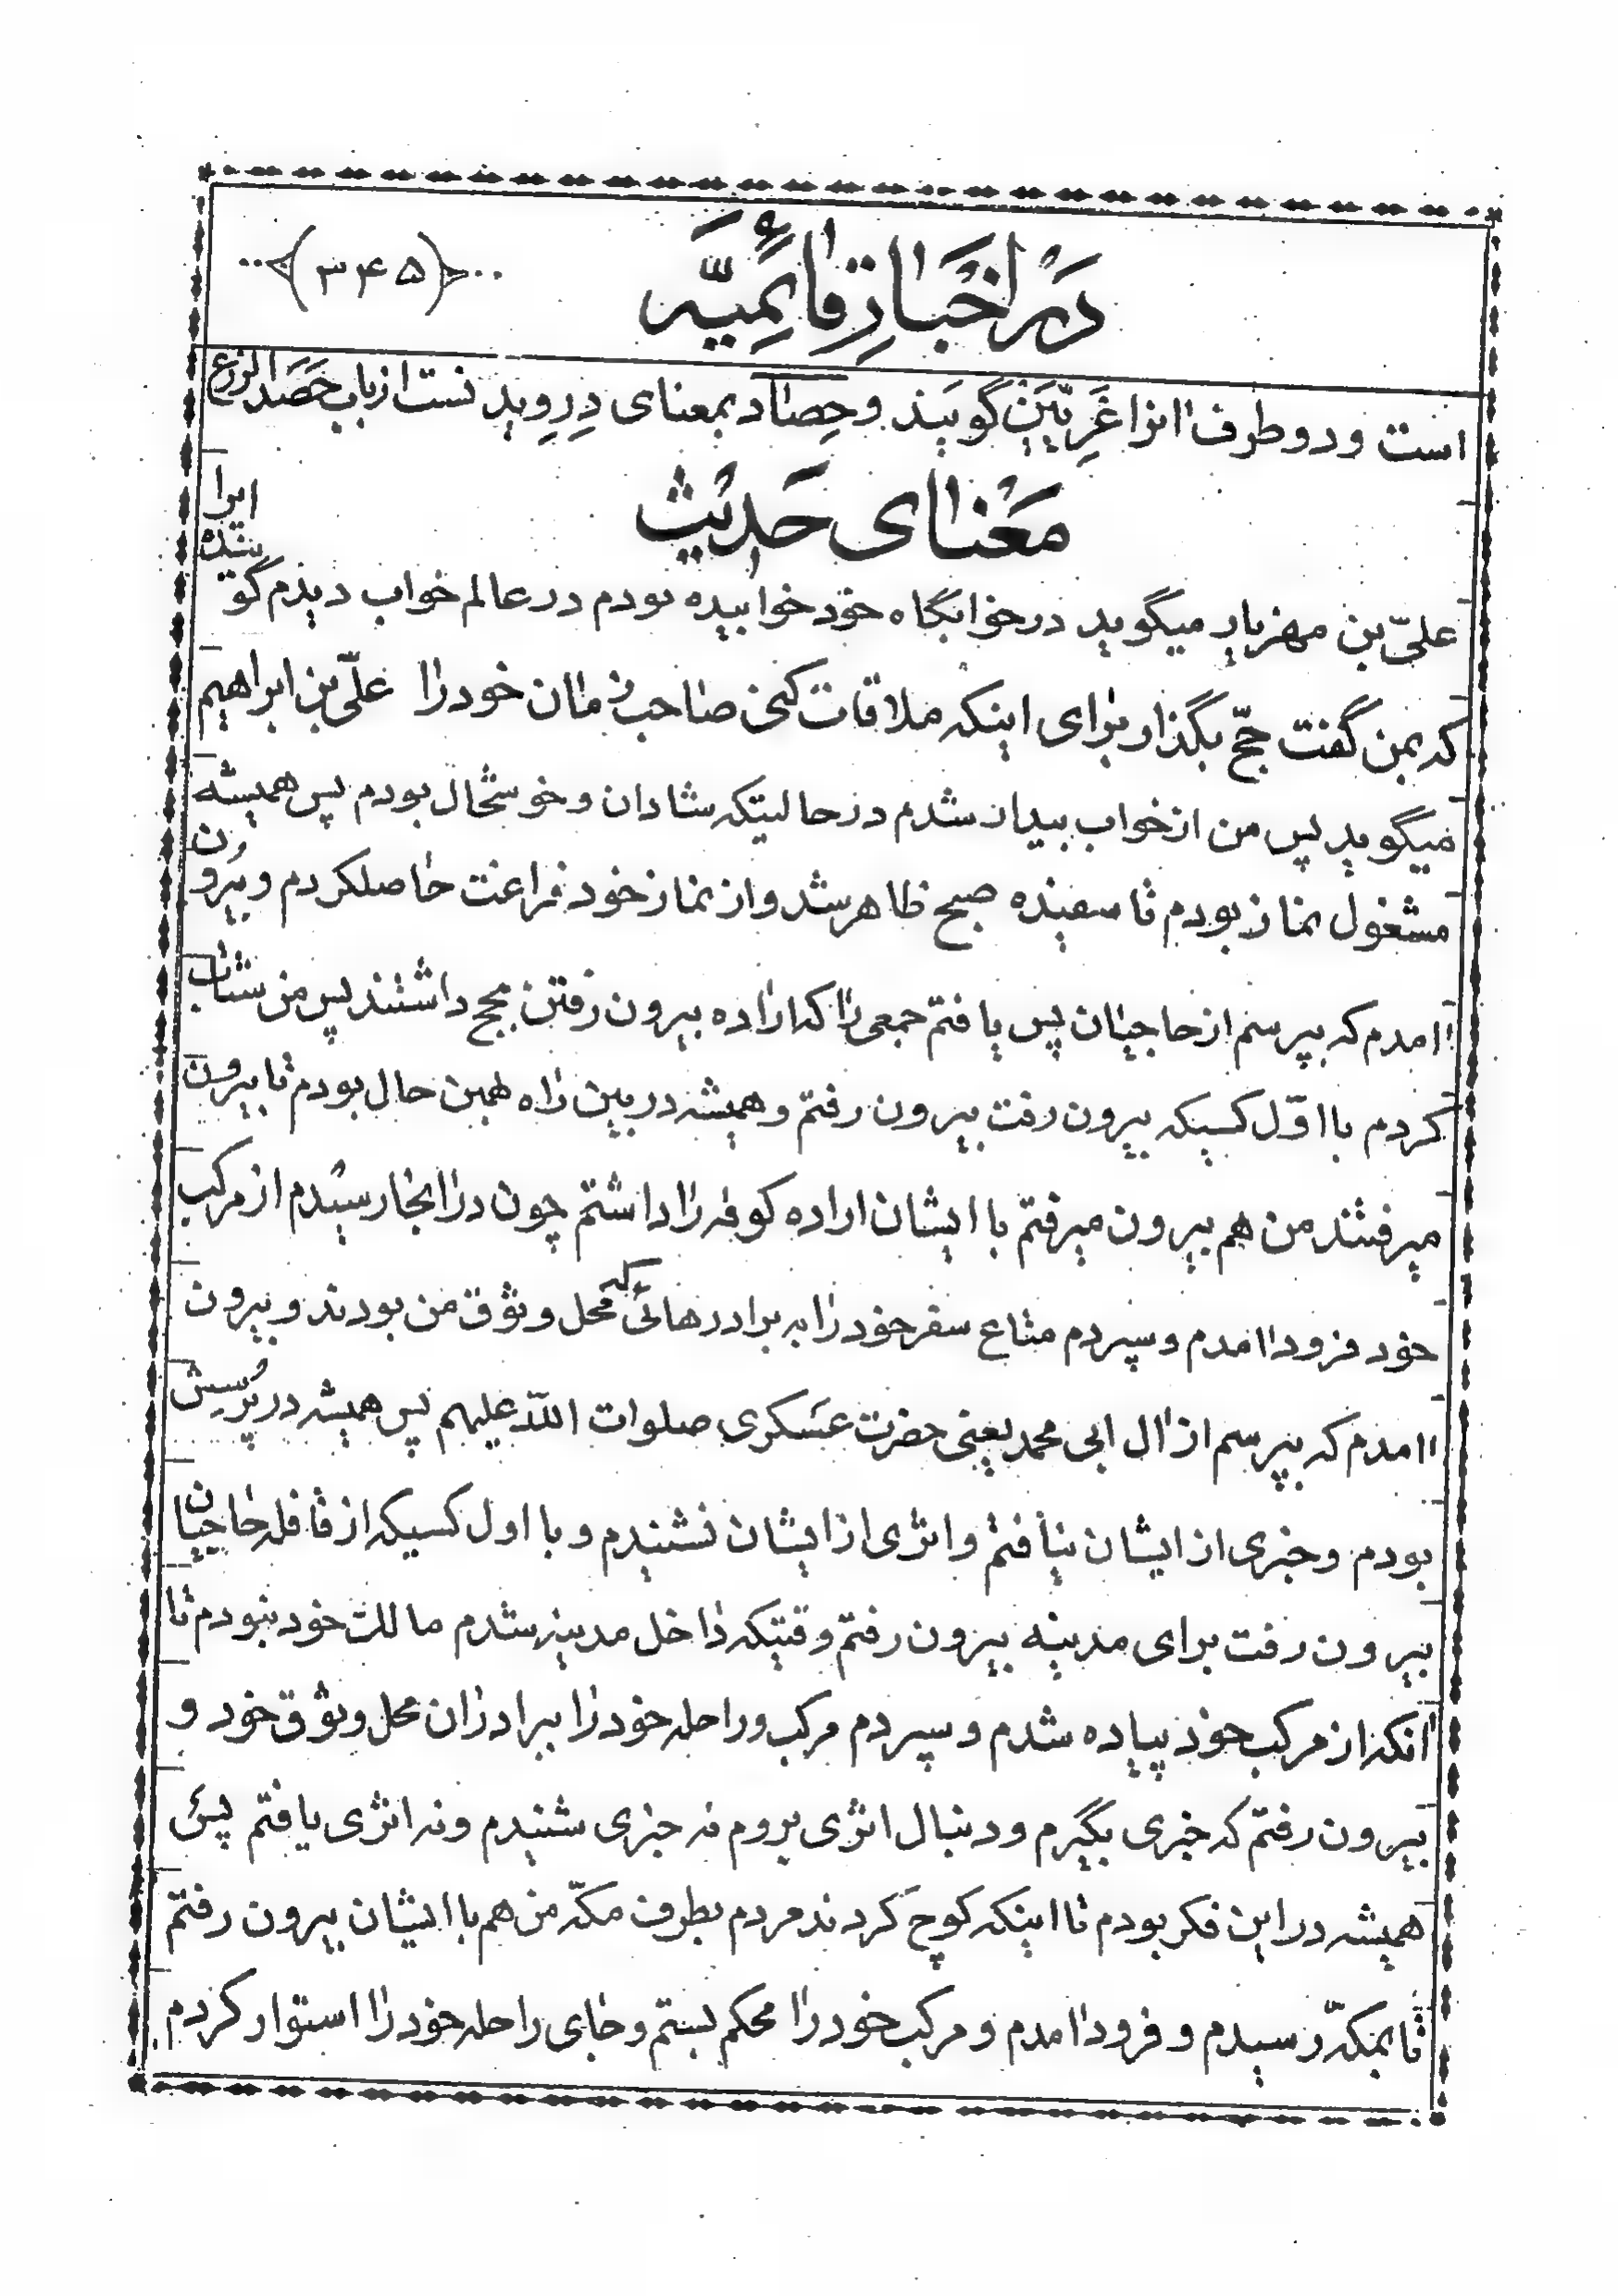 در اخبار قائمیّه
(۳۴۵)
است و دو طرف آنرا غَرِیّین گویند و حِصاد بمعنای دِرویدنست از باب حَصَدَ الزرع
معنای حدیث
علیّ بن مهزیار میگوید در خوابگاه خود خوابیده بودم در عالم خواب دیدم گوینده ایرا
که بمن گفت حجّ بگذار برای اینکه ملاقات کنی صاحب زمان خود را علیّ بن ابراهیم
میگوید پس من از خواب بیدار شدم در حالتیکه شادان و خوشحال بودم پس همیشه
مشغول نماز بودم تا سفیده صبح ظاهر شد و از نماز خود فراغت حاصلکردم و بیرون
آمدم که بپرسم از حاجیان پس یافتم جمعی را که اراده بیرون رفتن بحج داشتند پس من شتاب
کردم با اوّل کسیکه بیرون رفت بیرون رفتم و همیشه در بین راه بهمین حال بودم تا بیرون
میرفتند من هم بیرون میرفتم با ایشان اراده کوفه را داشتم چون در آنجا رسیدم از مرکب
خود فرود آمدم و سپردم متاع سفر خود را به برادرهائی که محل وثوق من بودند و بیرون
آمدم که بپرسم از آل ابی محمد یعنی حضرت عسکری صلوات اللّه علیهم پس همیشه در پُرسش
بودم و خبری از ایشان نیافتم و اثری از ایشان نشنیدم و با اول کسیکه از قافله حاجیان
بیرون رفت برای مدینه بیرون رفتم وقتیکه داخل مدینه شدم مالک خود نبودم تا
آنکه از مرکب خود پیاده شدم و سپردم مرکب و راحله خود را ببرادران محل وثوق خود و
بیرون رفتم که خبری بگیرم و دنبال اثری بروم نه خبری شنیدم و نه اثری یافتم پس
همیشه در این فکر بودم تا اینکه کوچ کردند مردم بطرف مکّه من هم با ایشان بیرون رفتم
تا بمکّه رسیدم و فرود آمدم و مرکب خود را محکم بستم و جای راحله خود را استوار کردم